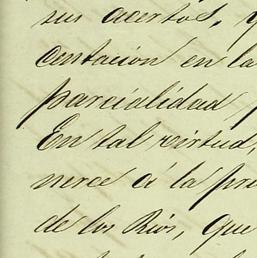 sus acertos, y
centacion en la
parcialidad
En tal virtud,
nerce á la pri
de los Rios, que